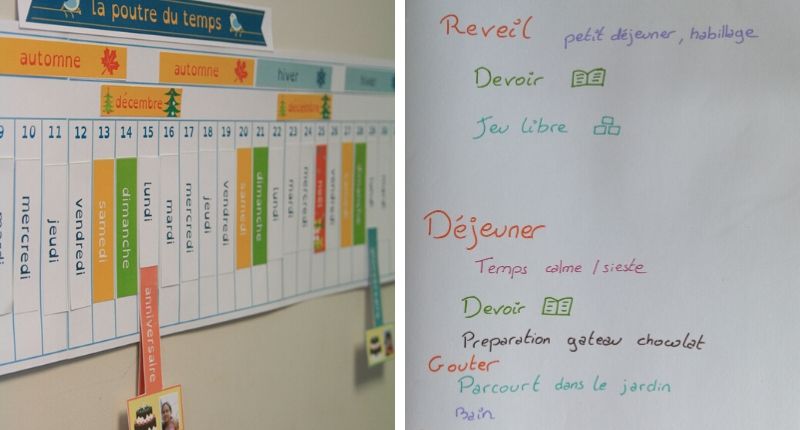 la poutre du temps
automne
automne
hiver
hiver
décembre
décembre
9 10 11 12 13 14 15 16 17 18 19 20 21 22 23 24 25 26 27 28 29 30
mardi mercredi jeudi vendredi samedi dimanche lundi mardi mercredi jeudi vendredi samedi dimanche lundi mardi mercredi Noël vendredi samedi dimanche lundi mardi
anniversaire
Reveil petit déjeuner, habillage
Devoir
Jeu libre
Déjeuner
Temps calme / sieste
Devoir
Preparation gateau chocolat
Gouter
Parcourt dans le jardin
Bain